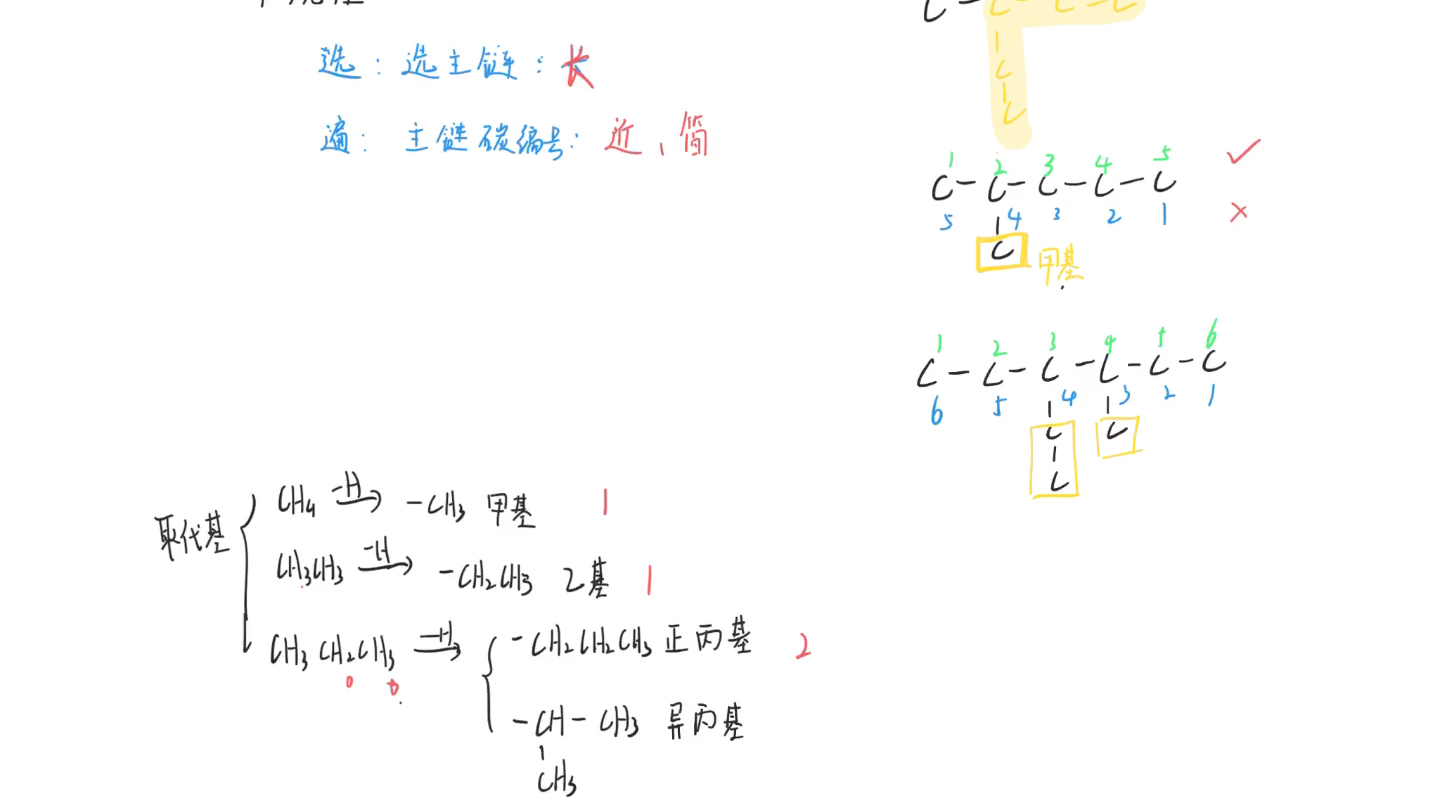 选：选主链：长
遍：主链碳编号：近、简
C
C
C
1 2 3 4 5 ✓
C－C－C－C－C
5 4 3 2 1 ×
C 甲基
1 2 3 4 5 6
C－C－C－C－C－C
6 5 4 3 2 1
C C
C
取代基
CH4 －H → －CH3 甲基 1
CH3CH3 －H → －CH2CH3 乙基 1
CH3CH2CH3 －H → －CH2CH2CH3 正丙基 2
－CH－CH3 异丙基
CH3